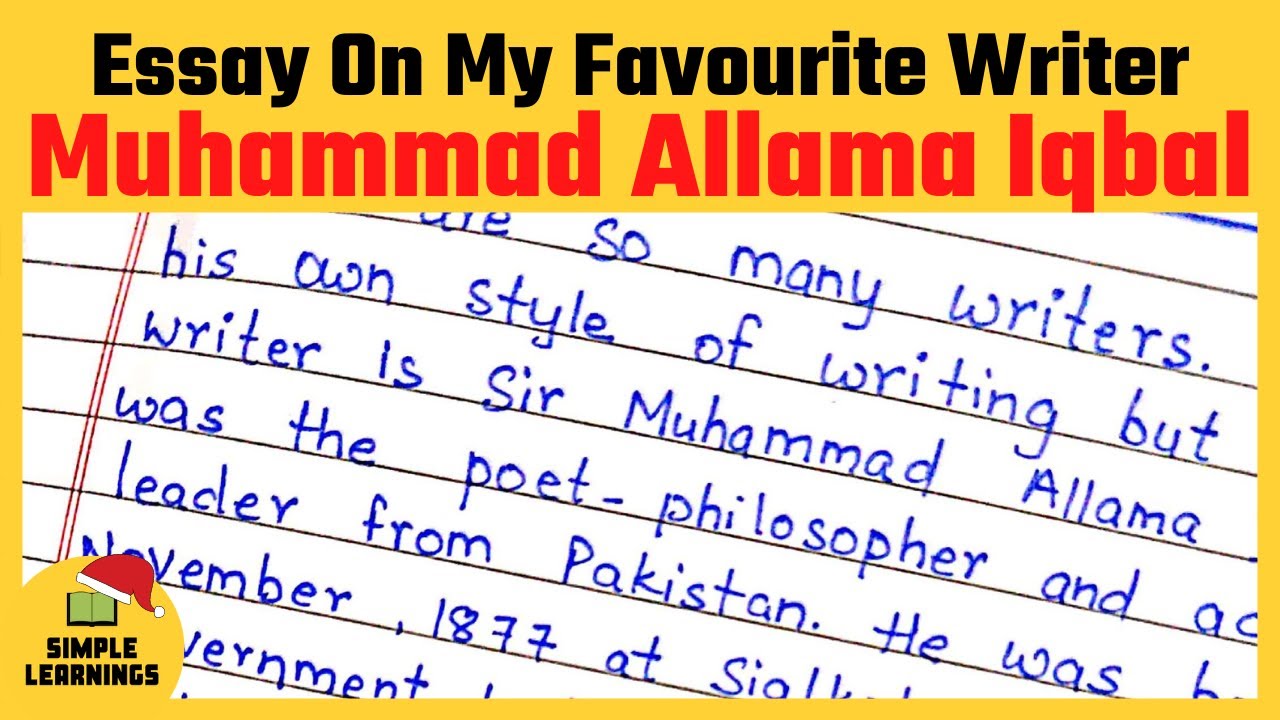 Essay On My Favourite Writer
Muhammad Allama Iqbal
are so many writers.
his own style of writing but
writer is Sir Muhammad Allama
was the poet-philosopher and ac
leader from Pakistan. He was b
November, 1877 at Sialk
vernment
SIMPLE
LEARNINGS